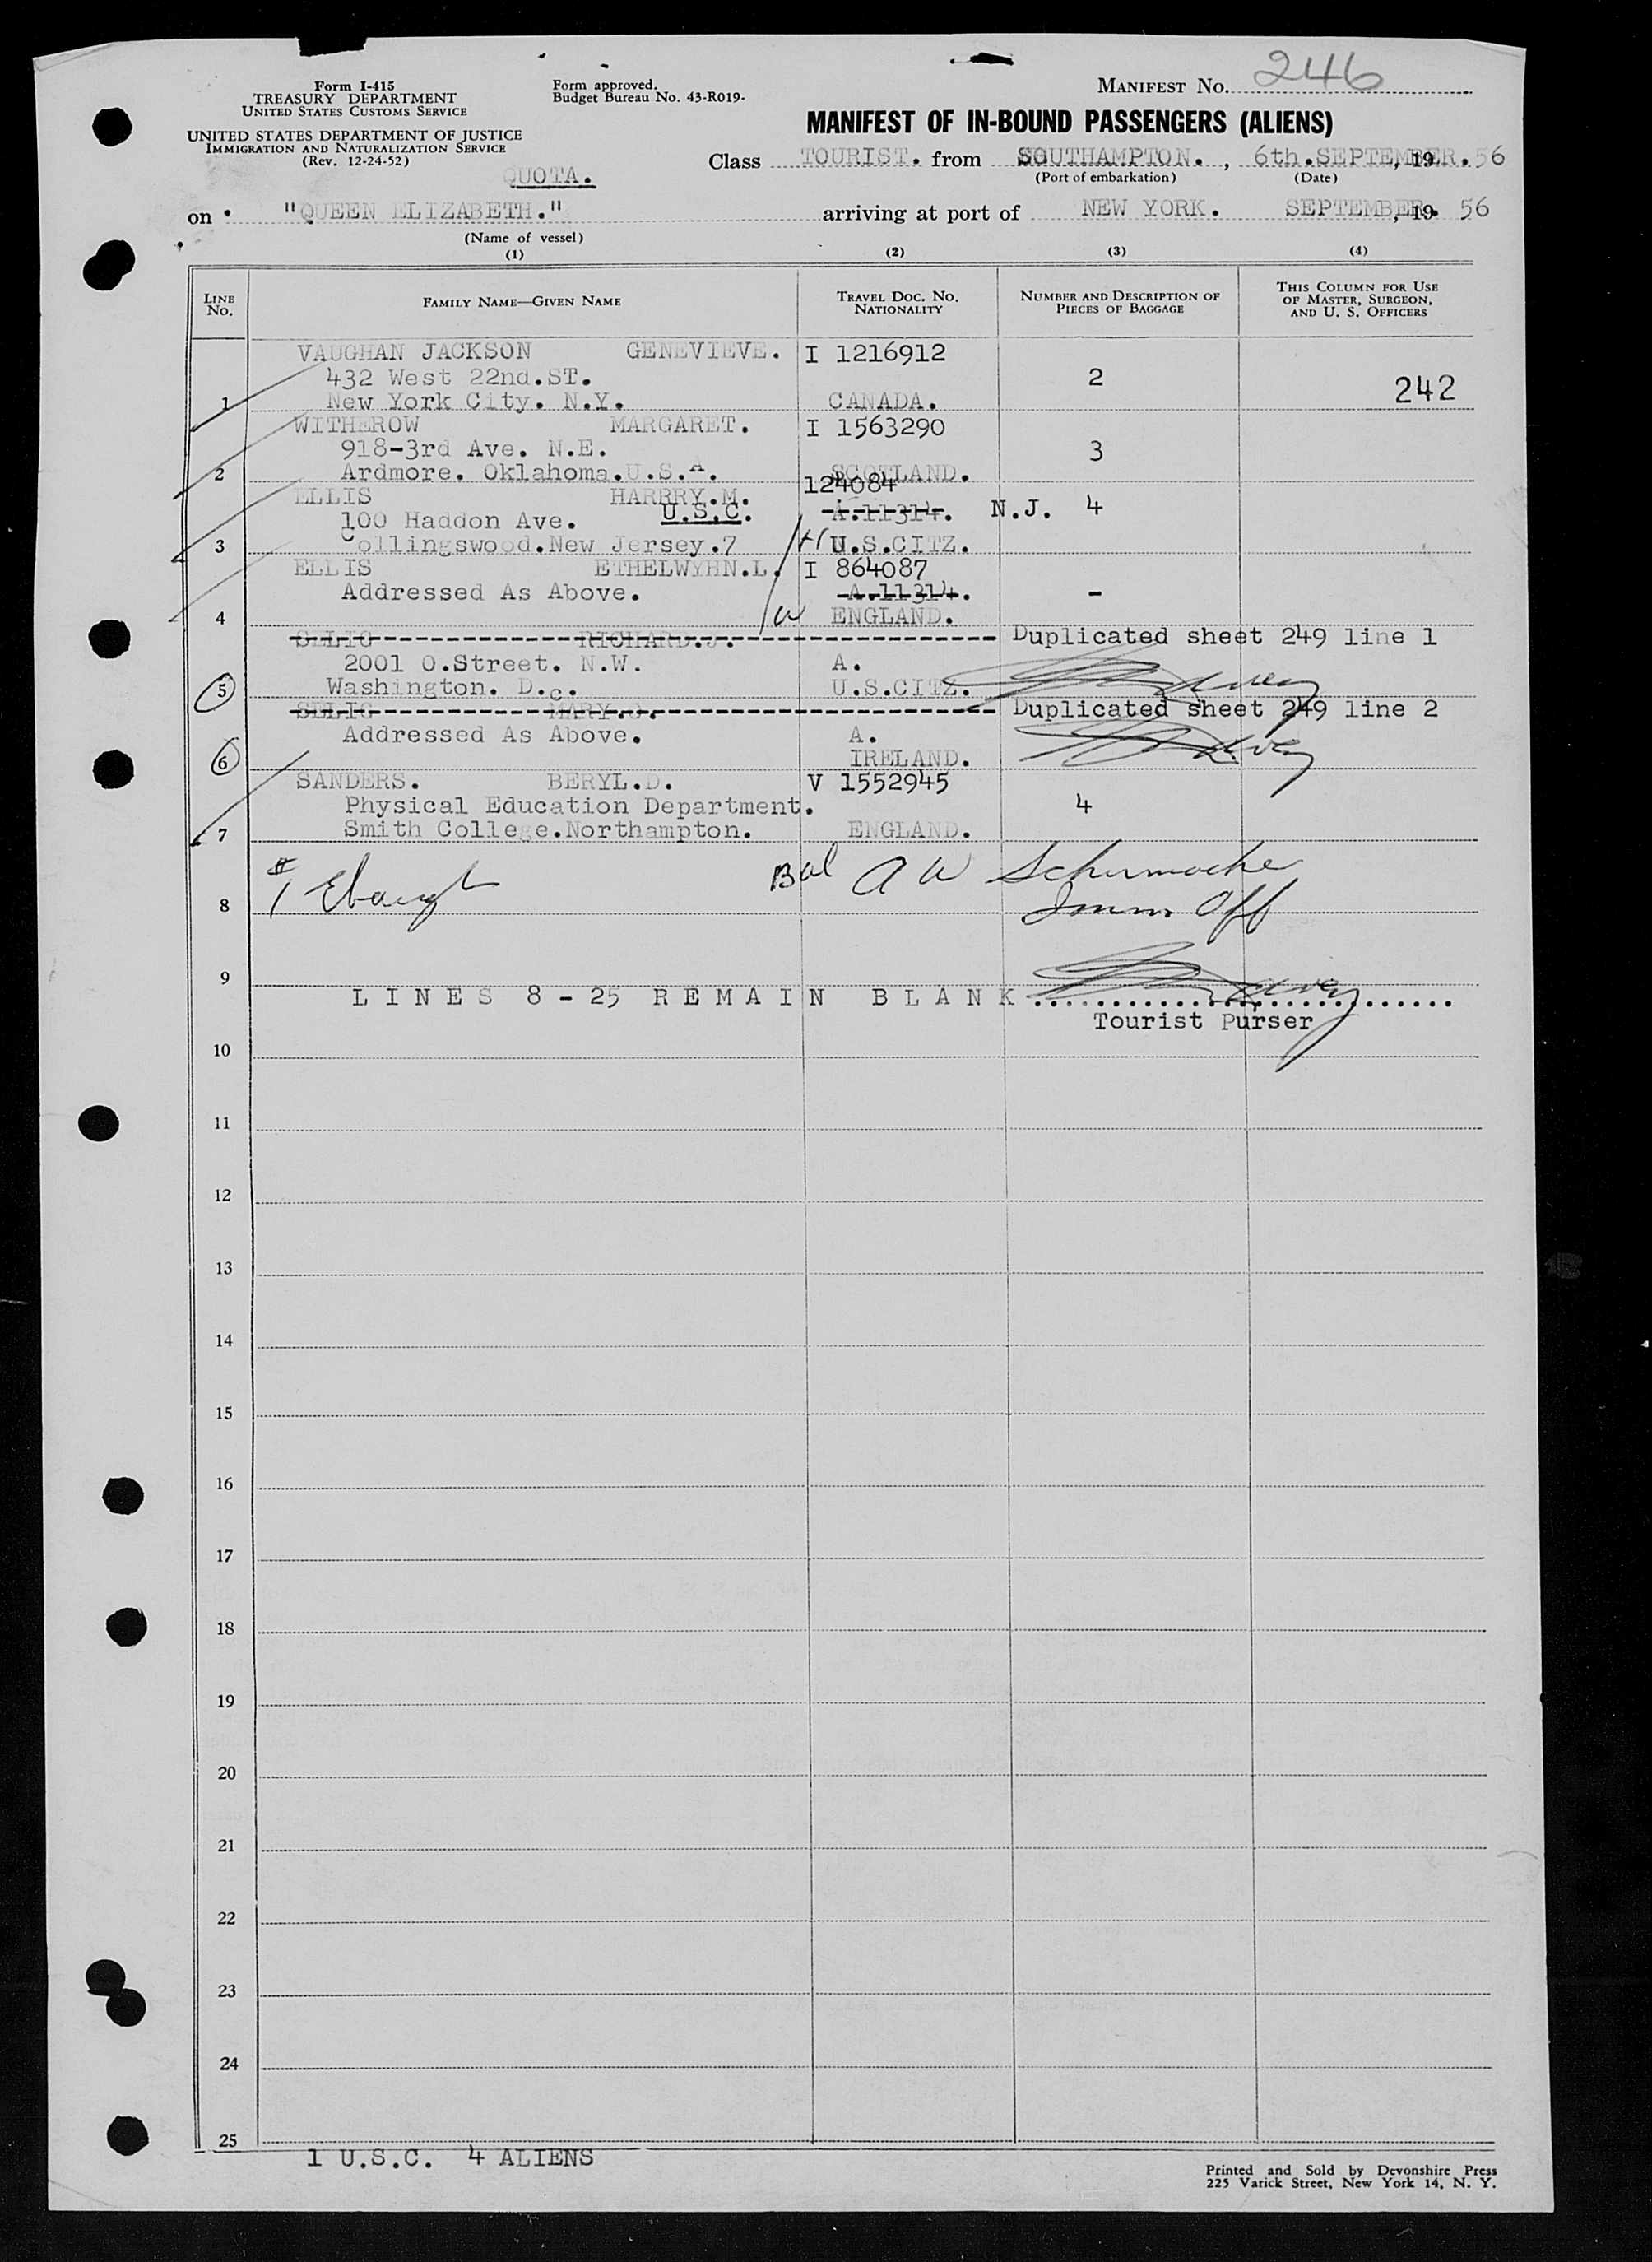 Form I-415
TREASURY DEPARTMENT
UNITED STATES CUSTOMS SERVICE
UNITED STATES DEPARTMENT OF JUSTICE
IMMIGRATION AND NATURALIZATION SERVICE
(Rev. 12-24-52)
Form approved.
Budget Bureau No. 43-R019-
MANIFEST No. 246
MANIFEST OF IN-BOUND PASSENGERS (ALIENS)
QUOTA.
Class TOURIST. from SOUTHAMPTON. , 6th.SEPTEMBER.56, 19
(Port of embarkation) (Date)
on "QUEEN ELIZABETH." arriving at port of NEW YORK. SEPTEMBER. , 19 56
(Name of vessel)
(1) (2) (3) (4)
LINE No. FAMILY NAME—GIVEN NAME TRAVEL DOC. No. NATIONALITY NUMBER AND DESCRIPTION OF PIECES OF BAGGAGE THIS COLUMN FOR USE OF MASTER, SURGEON, AND U. S. OFFICERS
VAUGHAN JACKSON GENEVIEVE. I 1216912
432 West 22nd.ST. 2
1 New York City. N.Y. CANADA. 242
WITHEROW MARGARET. I 1563290
918-3rd Ave. N.E. 3
2 Ardmore. Oklahoma.U.S.A. SCOTLAND.
ELLIS HARRRY.M. 124084
100 Haddon Ave. U.S.C. A.11314. N.J. 4
3 Collingswood.New Jersey.7 U.S.CITZ.
ELLIS ETHELWYHN.L. I 864087
Addressed As Above. A.11314. -
4 ENGLAND.
SELIG RICHARD.J. Duplicated sheet 249 line 1
2001 O.Street. N.W. A.
5 Washington. D.c. U.S.CITZ.
SELIG MARY.O. Duplicated sheet 249 line 2
Addressed As Above. A.
6 IRELAND.
SANDERS. BERYL.D. V 1552945
Physical Education Department. 4
7 Smith College.Northampton. ENGLAND.
#1 Ebaugh Bal A W Schumache
8 Imm Off
9
LINES 8-25 REMAIN BLANK
Tourist Purser
10
11
12
13
14
15
16
17
18
19
20
21
22
23
24
25
1 U.S.C. 4 ALIENS
Printed and Sold by Devonshire Press
225 Varick Street, New York 14, N. Y.